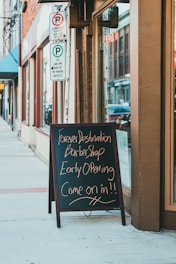 Forever Destination
BarberShop
Early Opening
Come on in!!